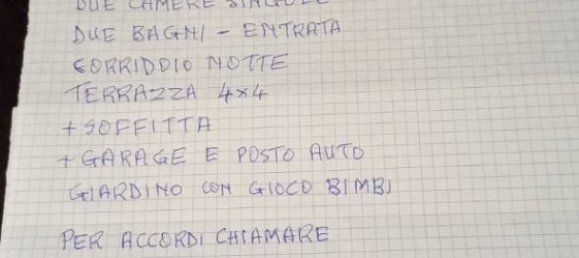 DUE CAMERE SINGOLE
DUE BAGNI - ENTRATA
CORRIDOIO NOTTE
TERRAZZA 4x4
+ SOFFITTA
+ GARAGE E POSTO AUTO
GIARDINO CON GIOCO BIMBI
PER ACCORDI CHIAMARE